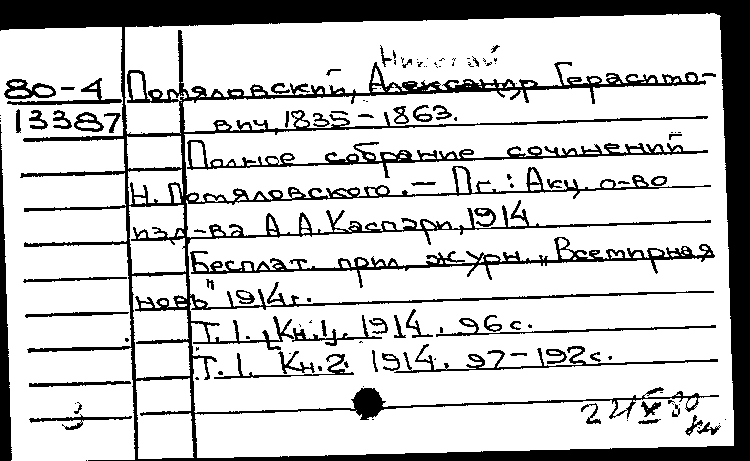 Николай
80-4 Помяловский, Александр Герасимо-
13387 вич, 1835-1863.
Полное собрание сочинений
Н. Помяловского. — Пг.: Акц. о-во
изд-ва А.А. Каспари, 1914.
Бесплат. прил. журн. „Всемирная
новь" 1914г.
Т. 1. [Кн.1]. 1914. 96 с.
Т. 1. Кн.2. 1914. 97-192с.
3 
80